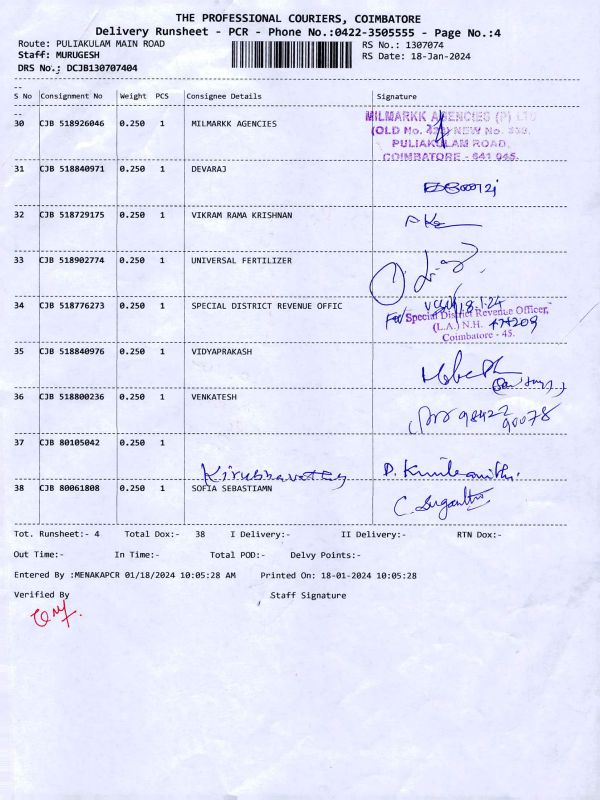 THE PROFESSIONAL COURIERS, COIMBATORE
Delivery Runsheet - PCR - Phone No.:0422-3505555 - Page No.:4
Route: PULIAKULAM MAIN ROAD RS No.: 1307074
Staff: MURUGESH RS Date: 18-Jan-2024
DRS No.: DCJB130707404
S No Consignment No Weight PCS Consignee Details Signature
30 CJB 518926046 0.250 1 MILMARKK AGENCIES MILMARKK AGENCIES (P) LTD
(OLD No. NEW No.
PULIAKULAM ROAD,
COIMBATORE - 641 045.
31 CJB 518840971 0.250 1 DEVARAJ
32 CJB 518729175 0.250 1 VIKRAM RAMA KRISHNAN
33 CJB 518902774 0.250 1 UNIVERSAL FERTILIZER
34 CJB 518776273 0.250 1 SPECIAL DISTRICT REVENUE OFFIC 18.1.24
Special District Revenue Officer,
(L.A.) N.H.
Coimbatore - 45.
35 CJB 518840976 0.250 1 VIDYAPRAKASH
36 CJB 518800236 0.250 1 VENKATESH 98422
90078
37 CJB 80105042 0.250 1
38 CJB 80061808 0.250 1 SOFIA SEBASTIAMN
Tot. Runsheet:- 4 Total Dox:- 38 I Delivery:- II Delivery:- RTN Dox:-
Out Time:- In Time:- Total POD:- Delvy Points:-
Entered By :MENAKAPCR 01/18/2024 10:05:28 AM Printed On: 18-01-2024 10:05:28
Verified By Staff Signature